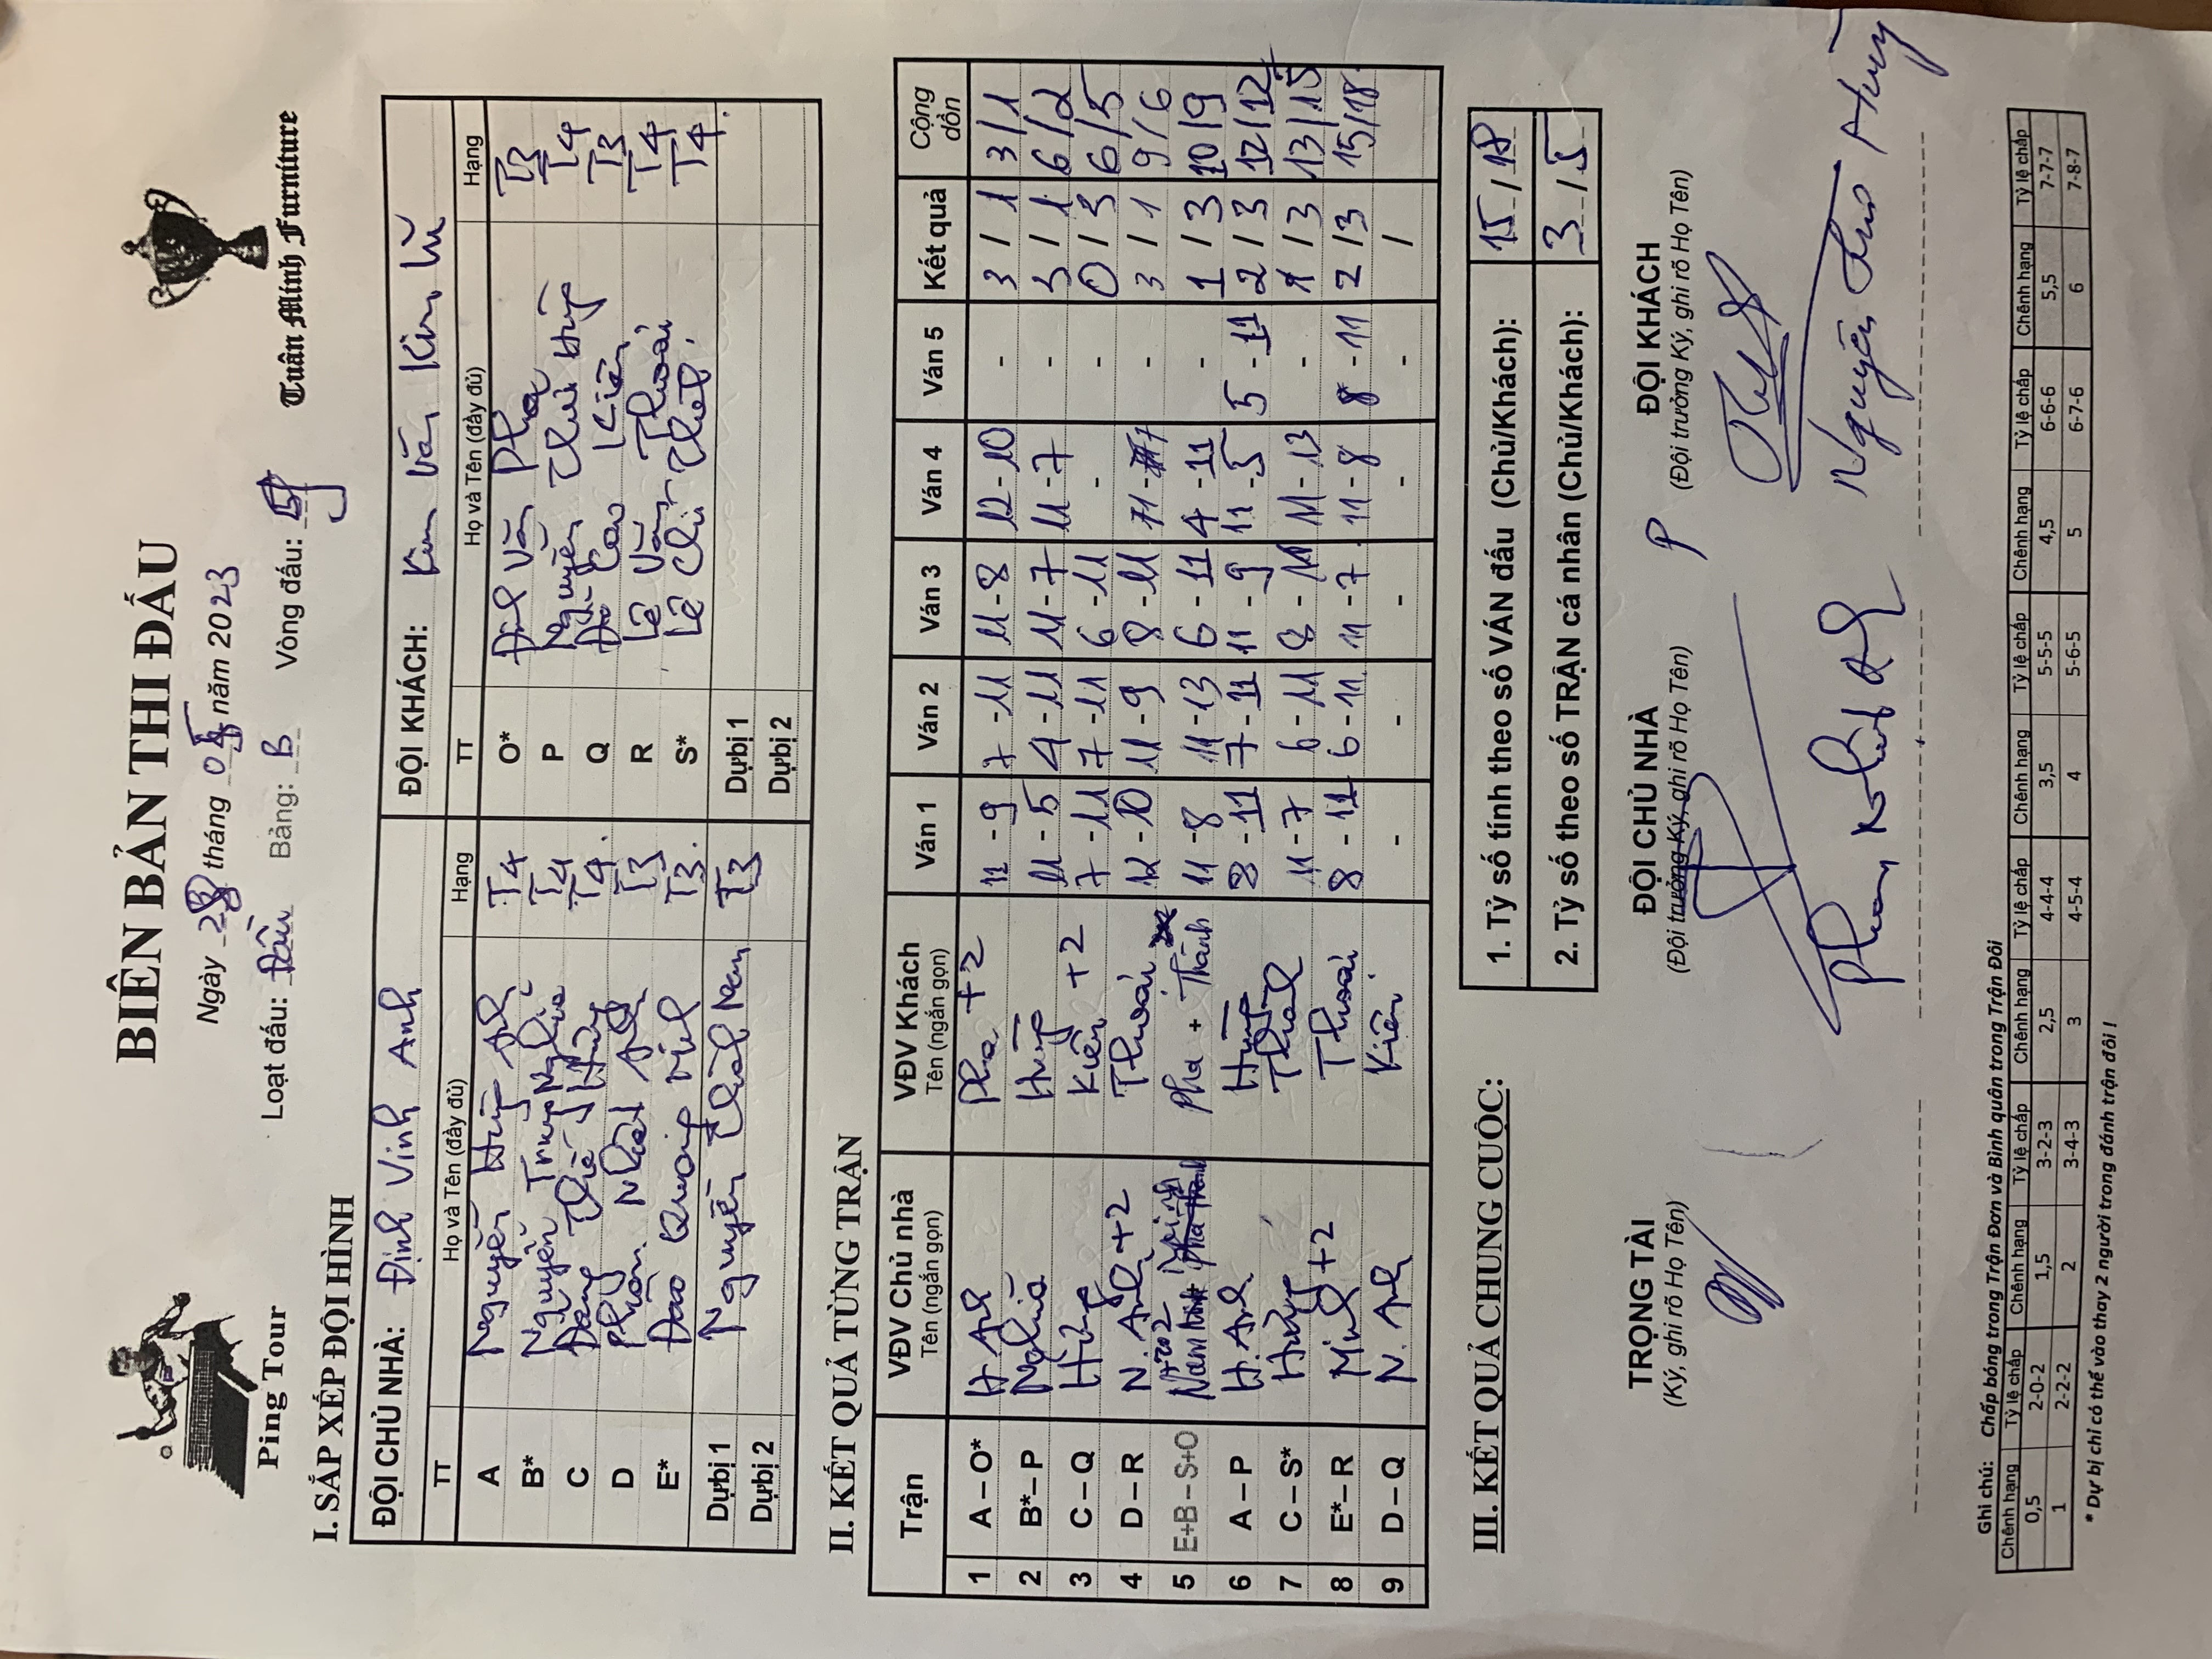 BIÊN BẢN THI ĐẤU
Ping Tour
Ngày 28 tháng 05 năm 2023
Loạt đấu: Đầu Bảng: B Vòng đấu:
Tuân Minh Furniture
I. SẮP XẾP ĐỘI HÌNH
ĐỘI CHỦ NHÀ: Định Vinh Anh ĐỘI KHÁCH: Kim Văn Kim Lũ
TT Họ và Tên (đầy đủ) Hạng TT Họ và Tên (đầy đủ) Hạng
A Nguyễn Hùng Anh T4 O* Đinh Văn Pha T3
B* Nguyễn Trung Nghĩa T4 P Nguyễn Hùng T4
C Đặng Thế Hùng T4. Q Đỗ Cao Kiên T3
D Phan Nhật Anh T3 R Lê Văn Thoái T4
E* Đào Quang Minh T3. S* Lê Chí T4.
Dự bị 1 Nguyễn Thành Nam T3 Dự bị 1
Dự bị 2 Dự bị 2
II. KẾT QUẢ TỪNG TRẬN
Trận VĐV Chủ nhà VĐV Khách Ván 1 Ván 2 Ván 3 Ván 4 Ván 5 Kết quả Cộng dồn
Tên (ngắn gọn) Tên (ngắn gọn)
1 A – O* H Anh Pha +2 11 - 9 7 - 11 11 - 8 12 - 10 - 3 / 1 3/1
2 B* – P Nghĩa Hùng 11 - 5 4 - 11 11 - 7 11 - 7 - 3 / 1 6/2
3 C – Q Hùng Kiên +2 7 - 11 7 - 11 6 - 11 - - 0 / 3 6/5
4 D – R N. Anh +2 Thoái 12 - 10 11 - 9 8 - 11 11 - 7 - 3 / 1 9/6
5 E+B – S+O Pha + Thành 11 - 8 11 - 13 6 - 11 4 - 11 - 1 / 3 10/9
6 A – P H. Anh Hùng 8 - 11 7 - 11 11 - 9 11 - 5 5 - 11 2 / 3 12/12
7 C – S* Hùng Thành 11 - 7 6 - 11 8 - 11 11 - 13 - 1 / 3 13/15
8 E* – R Minh +2 Thoái 8 - 11 6 - 11 11 - 7 11 - 8 8 - 11 2 / 3 15/18
9 D – Q N. Anh Kiên - - - - - /
III. KẾT QUẢ CHUNG CUỘC:
1. Tỷ số tính theo số VÁN đấu (Chủ/Khách): 15 / 18
2. Tỷ số theo số TRẬN cá nhân (Chủ/Khách): 3 / 5
TRỌNG TÀI ĐỘI CHỦ NHÀ ĐỘI KHÁCH
(Ký, ghi rõ Họ Tên) (Đội trưởng Ký, ghi rõ Họ Tên) (Đội trưởng Ký, ghi rõ Họ Tên)
Phan Nhật Anh Nguyễn Hùng
Ghi chú: Chấp bóng trong Trận Đơn và Bình quân trong Trận Đôi
Chênh hạng Tỷ lệ chấp Chênh hạng Tỷ lệ chấp Chênh hạng Tỷ lệ chấp Chênh hạng Tỷ lệ chấp Chênh hạng Tỷ lệ chấp Chênh hạng Tỷ lệ chấp
0,5 2-0-2 1,5 3-2-3 2,5 4-4-4 3,5 5-5-5 4,5 6-6-6 5,5 7-7-7
1 2-2-2 2 3-4-3 3 4-5-4 4 5-6-5 5 6-7-6 6 7-8-7
* Dự bị chỉ có thể vào thay 2 người trong đánh trận đôi !